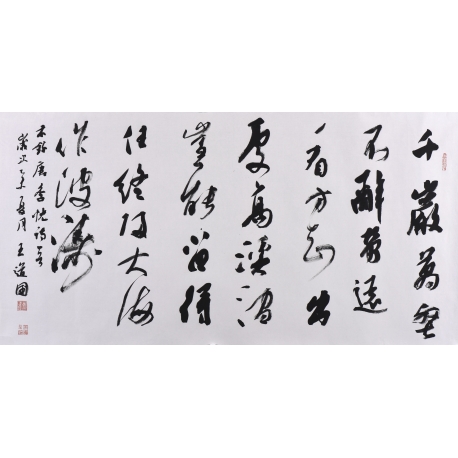 千巖萬壑
不辭勞遠
看方知出
處高溪澗
豈能留得
住終歸大海
作波濤
録唐李忱詩
乙未夏月王國